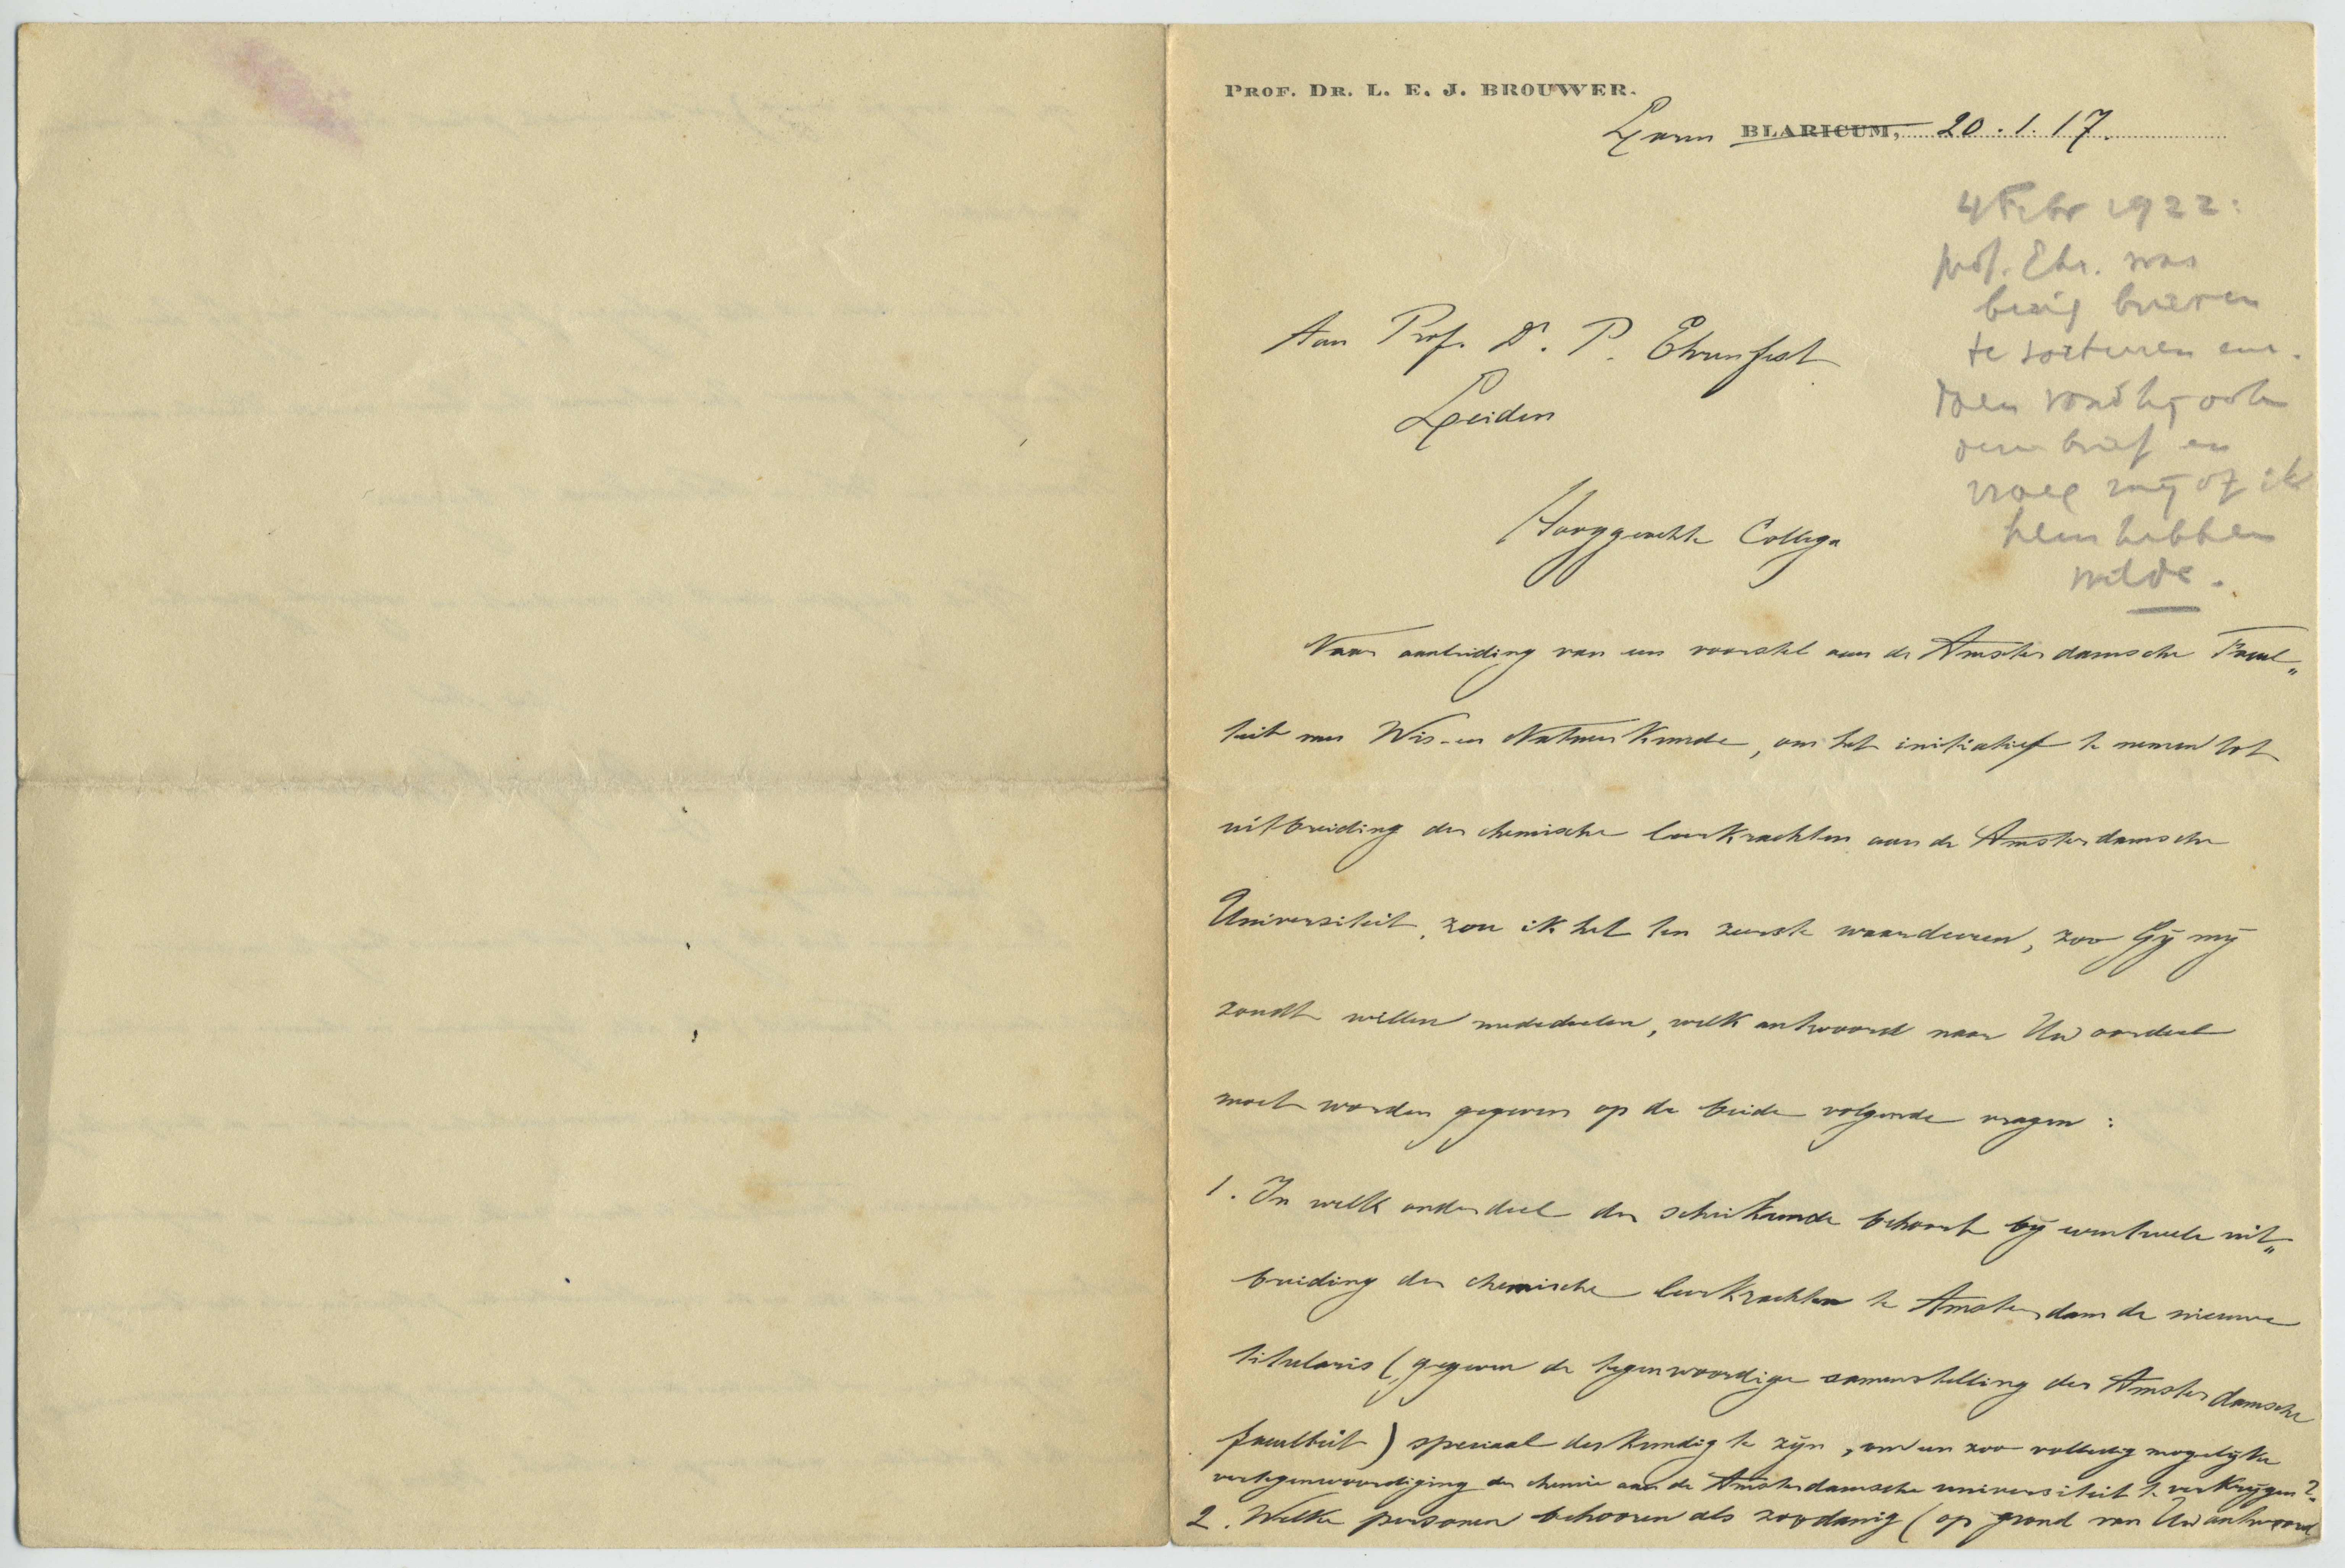 PROF. DR. L. E. J. BROUWER.
Laren BLARICUM, 20.1.17.
4 Febr 1922:
prof. Ehr. was
bezig brieven
te sorteeren en
toen vond hij ook
dezen brief en
vroeg mij of ik
hem hebben
wilde.
Aan Prof. Dr. P. Ehrenfest
Leiden
Hooggeachte Collega
Naar aanleiding van een voorstel aan de Amsterdamsche Facul„
teit van Wis- en Natuurkunde, om het initiatief te nemen tot
uitbreiding der chemische leerkrachten aan de Amsterdamsche
Universiteit, zou ik het ten zeerste waardeeren, zoo Gij mij
zoudt willen mededeelen, welk antwoord naar Uw oordeel
moet worden gegeven op de beide volgende vragen:
1. In welk onderdeel der scheikunde behoort bij eventueele uit„
breiding der chemische leerkrachten te Amsterdam de nieuwe
titularis (gegeven de tegenwoordige samenstelling der Amsterdamsche
faculteit) speciaal deskundig te zijn, om een zoo volledig mogelijke
vertegenwoordiging der chemie aan de Amsterdamsche universiteit te verkrijgen?
2. Welke personen behooren als zoodanig (op grond van Uw antwoord